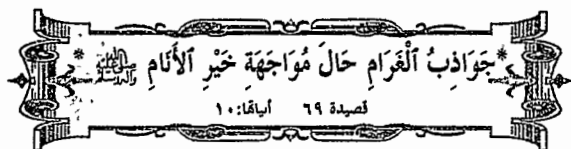 *جَوَاذِبُ ٱلْغَرَامِ حَالَ مُوَاجَهَةِ خَيْرِ ٱلأَنَامِ ﷺ*
قصيدة ٦٩ أبياتها: ١٠